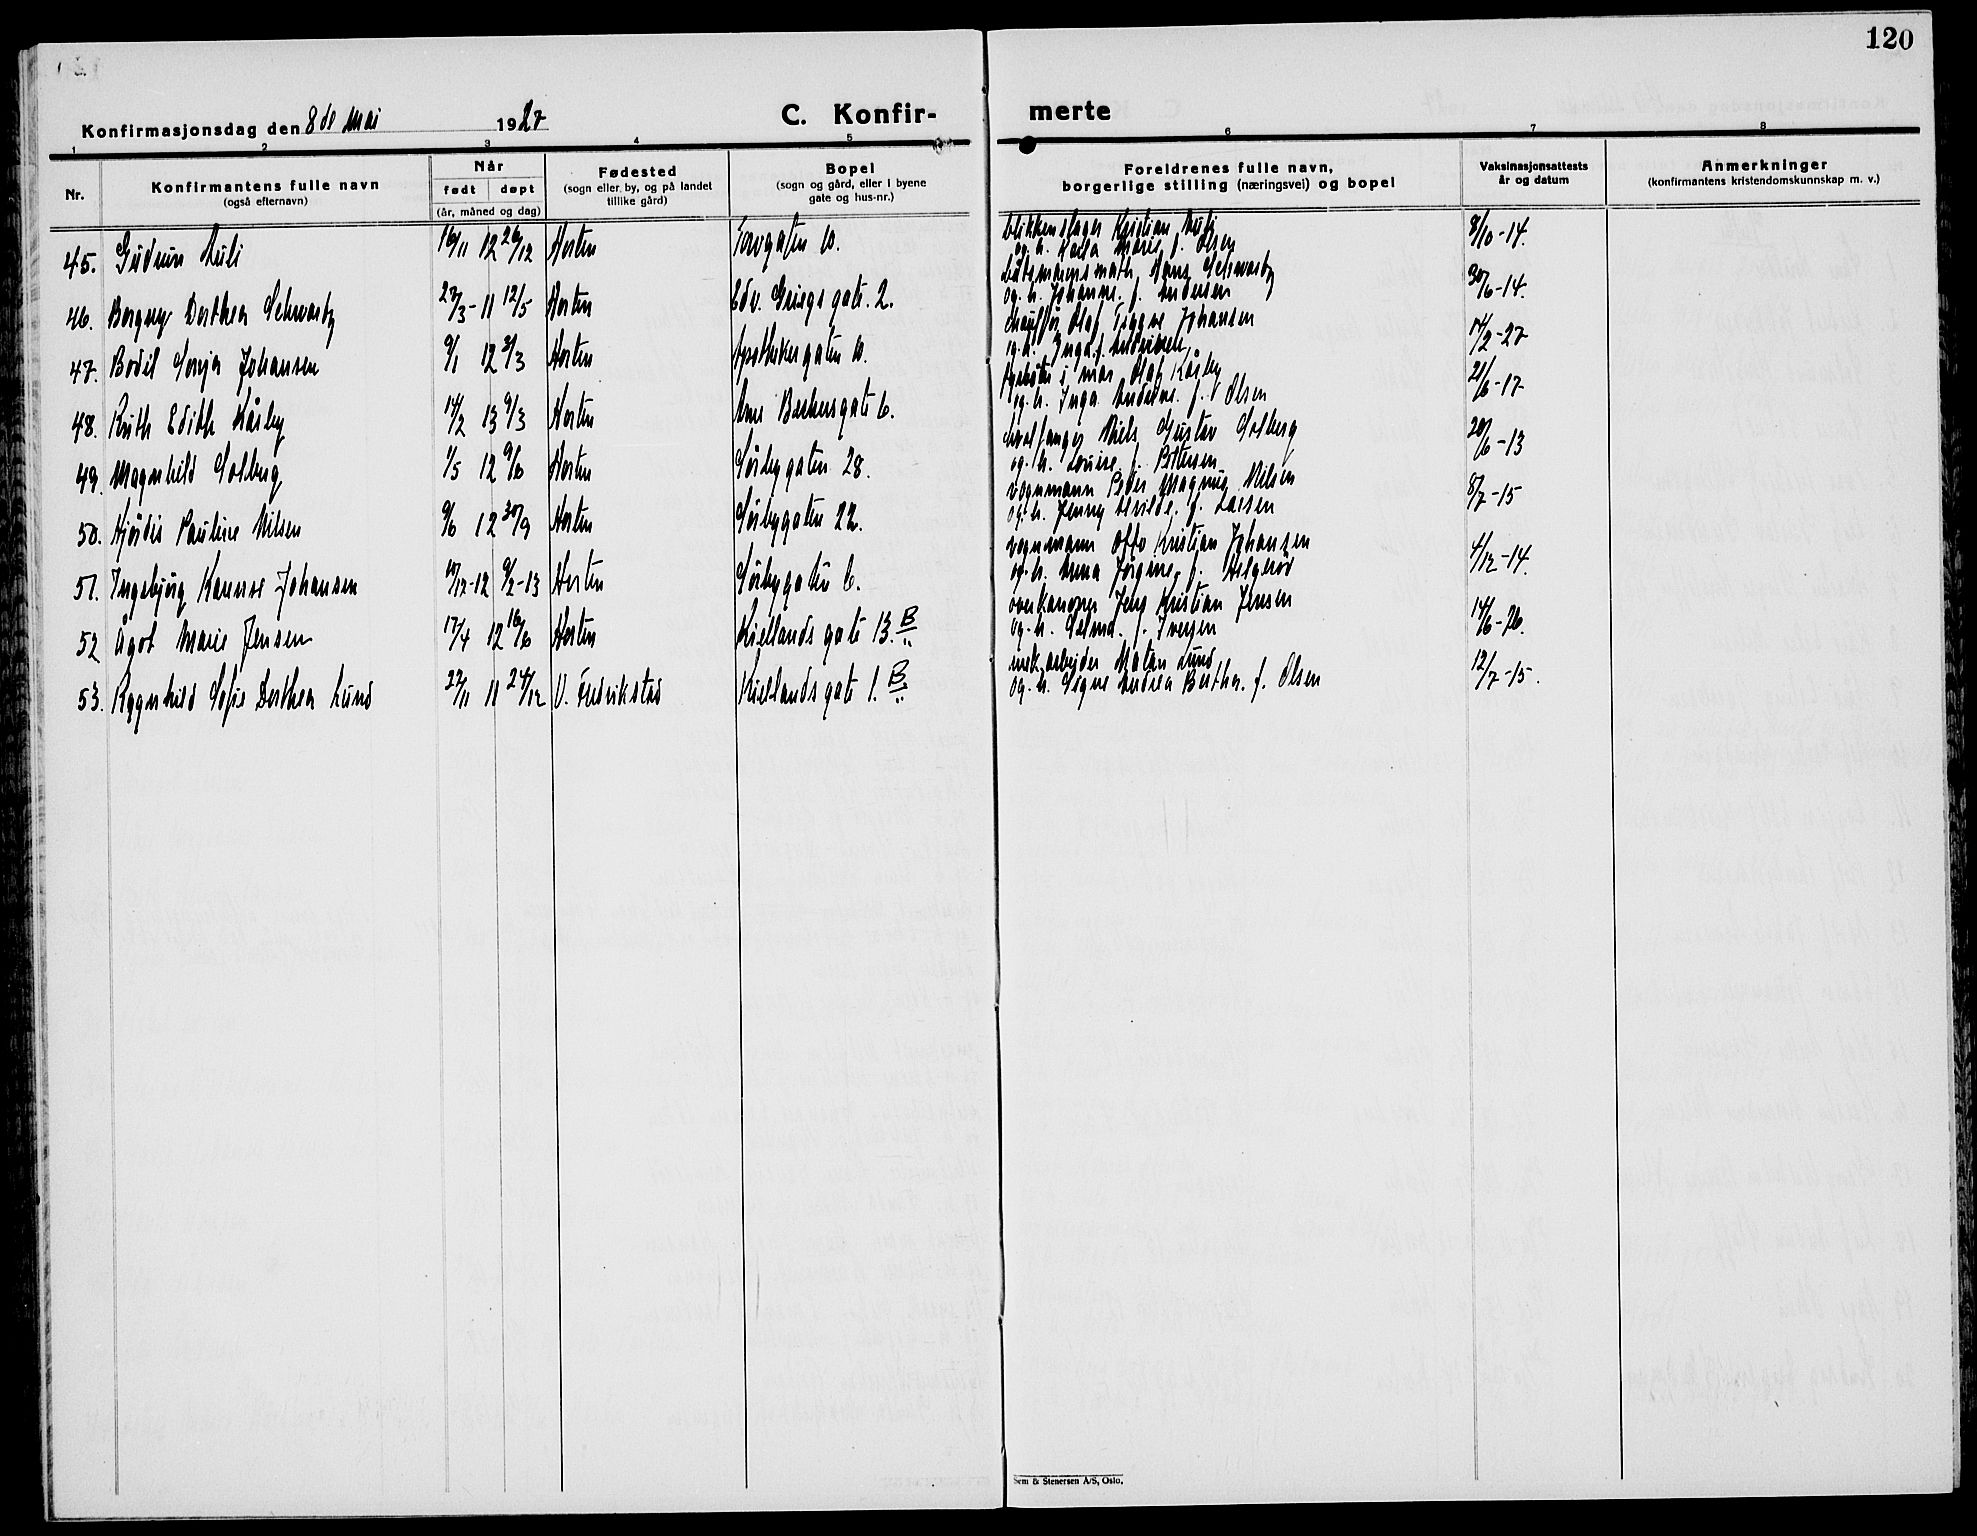 120
Konfirmasjonsdag den 8de mai 1927
C. Konfir-
merte
1 2 3 4 5 6 7 8
Nr.
Konfirmantens fulle navn
(også efternavn)
Når
født døpt
(år, måned og dag)
Fødested
(sogn eller by, og på landet
tillike gård)
Bopel
(sogn og gård, eller i byene
gate og hus-nr.)
Foreldrenes fulle navn,
borgerlige stilling (næringsvei) og bopel
Vaksinasjonsattests
år og datum
Anmerkninger
(konfirmantens kristendomskunnskap m. v.)
45. Gudrun 16/11 12 26/12 Horten Torvgaten 10.
blikkenslager Kristian
og h. Karla Marie f. Olsen
8/10-14.
46. Borgny Dorthea Schwarby 27/3-11 12/5 Horten Edv. Griegs gate. 2.
båtsmannsmath Hans Schwarby
og h. Johanne f. Andersen
30/6-14.
47. Bodil Sonja Johansen 9/1 12 3/3 Horten Apothekergaten 10.
chauffør Olaf Johansen
og h. Inga f.
14/2-27
48. Ruth Edith Kårby 14/2 13 9/3 Horten Bachersgate 6.
fyrbøter i mar. Olaf Kårby
og h. Inga Andrine f. Olsen
21/6-17
49. Magnhild Solberg 1/5 12 9/6 Horten Sørbygaten 28.
hvalfanger Niels Gustav Solberg
og h. Louise f. Pettersen
20/6-13
50. Hjørdis Pauline Nilsen 9/6 12 30/9 Horten Sørbygaten 22.
vognmann Peder Magnus Nilsen
og h. Jenny f. Larsen
8/7-15
51. Ingebjørg Johansen 12-12 9/2-13 Horten Sørbygaten 6.
vognmann Otto Kristian Johansen
og h. Anna Jørgine f. Helgerød
4/12-14.
52 Ågot Marie Jensen 17/4 12 16/6 Horten Kiellands gate 13. B
overkanoner Jens Kristian Jensen
og h. Selma f. Iversen
14/6-26.
53. Ragnhild Sofie Dorthea Lund 22/11 11 24/12 V. Fredrikstad Kiellands gate 1. B
mek. arbeider Lund
og h. Signe Andrea Berthe f. Olsen
12/7-15.
Sem & Stenersen A/S, Oslo.